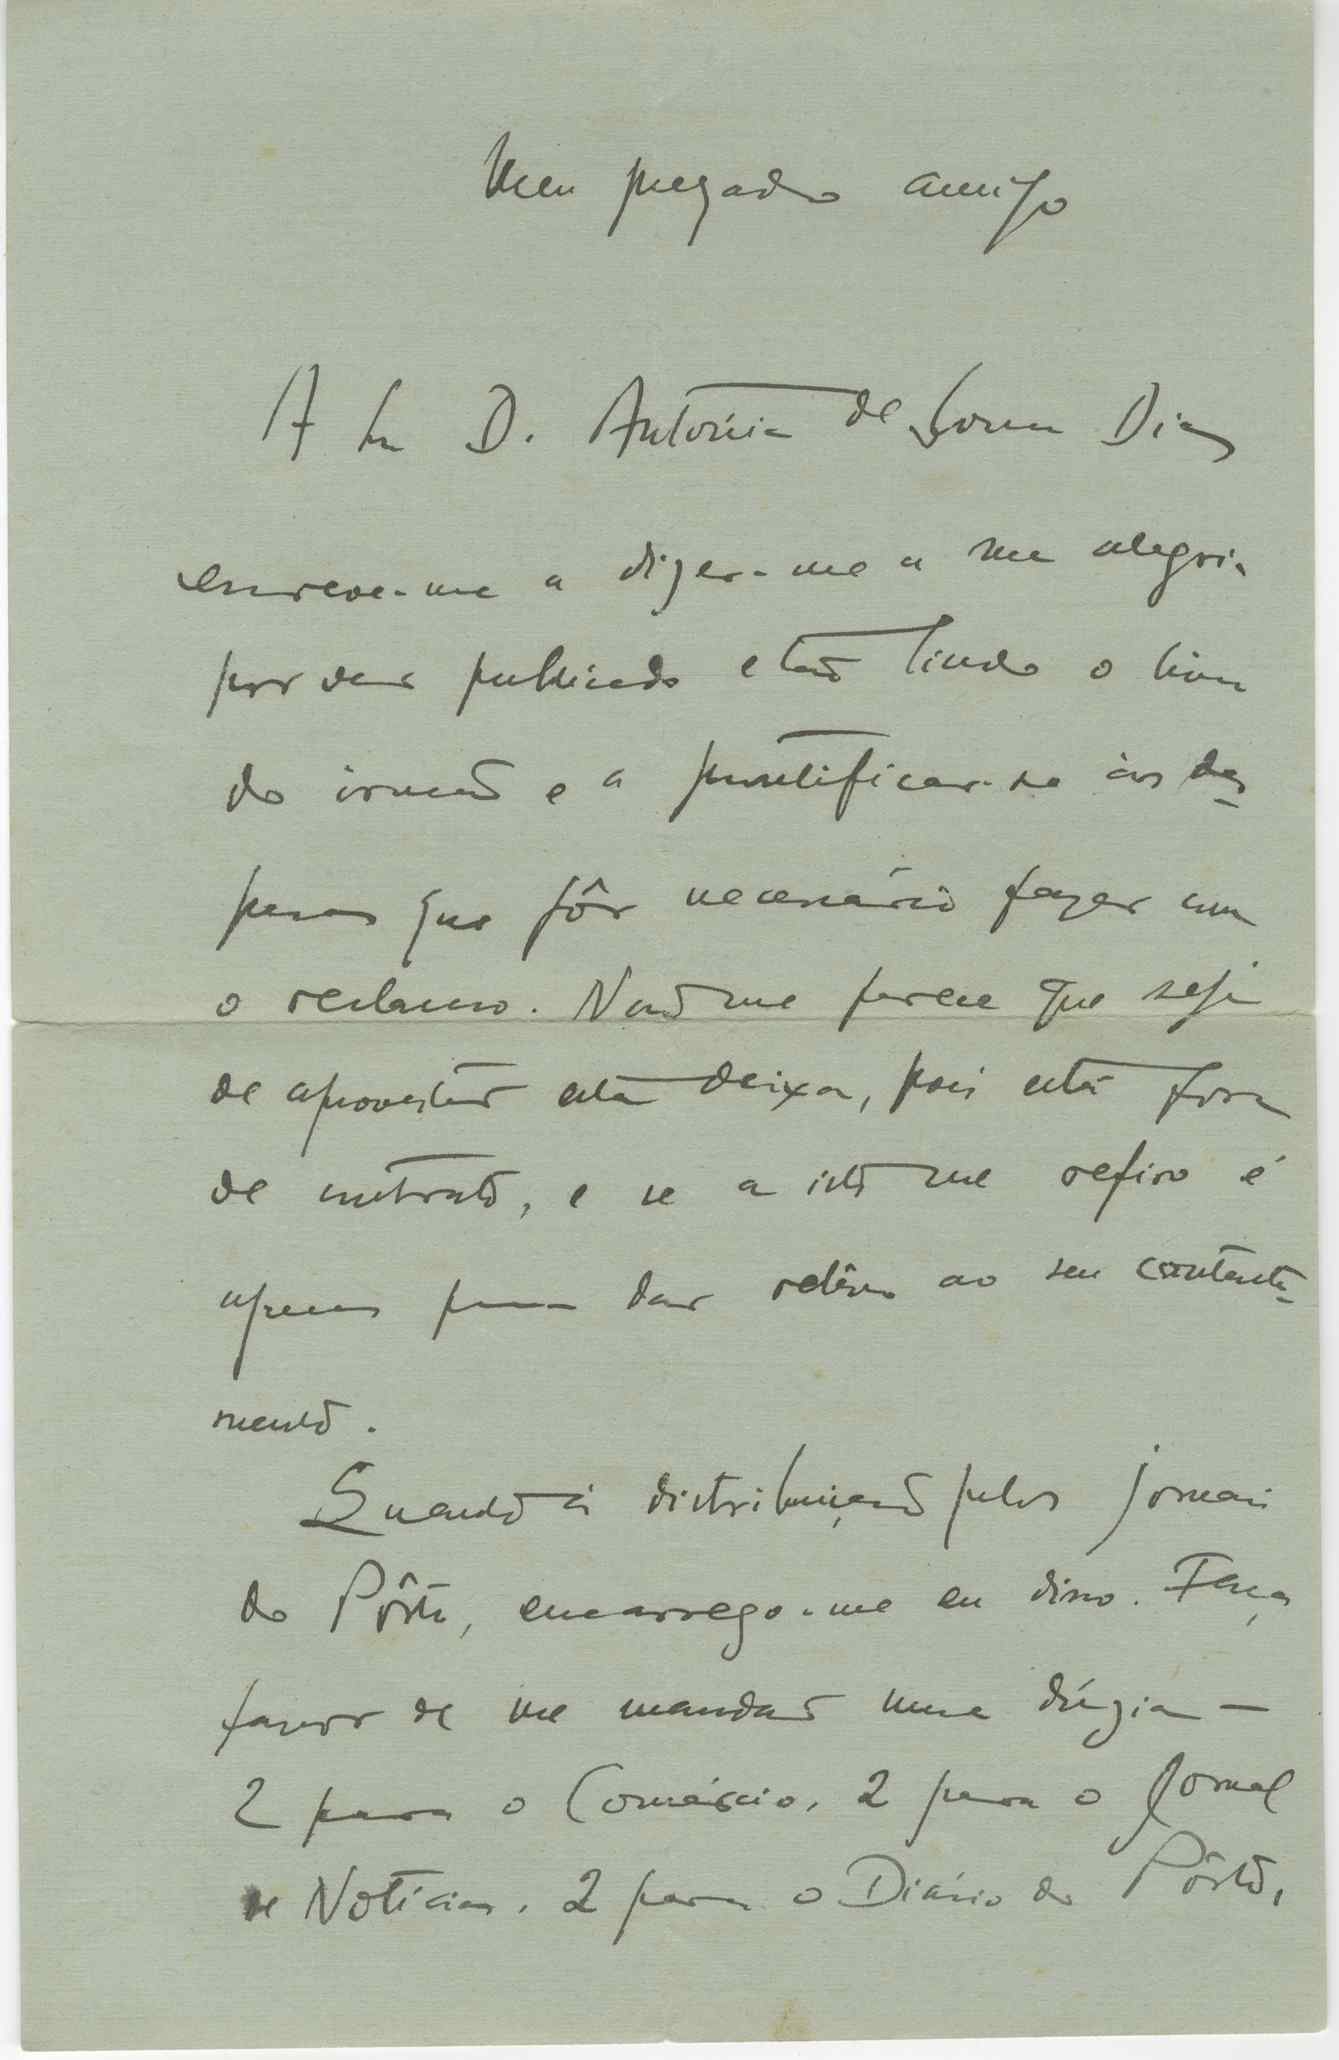 Meu prezado amigo
A Sra D. Antónia de Sousa Dias
escreve-me a dizer-me a sua alegria
por ver publicado e tão lindo o livro
do irmão e a prontificar-se às des-
pesas que fôr necessário fazer com
o reclamo. Não me parece que seja
de aproveitar esta deixa, pois está fora
de contrato, e se a isto me refiro é
apenas para dar relêvo ao seu contenta-
mento.
Quando à distribuição pelos jornais
do Pôrto, encarrego-me eu disso. Faça
favor de me mandar uma dúzia —
2 para o Comércio, 2 para o Jornal
de Notícias, 2 para o Diário do Pôrto,